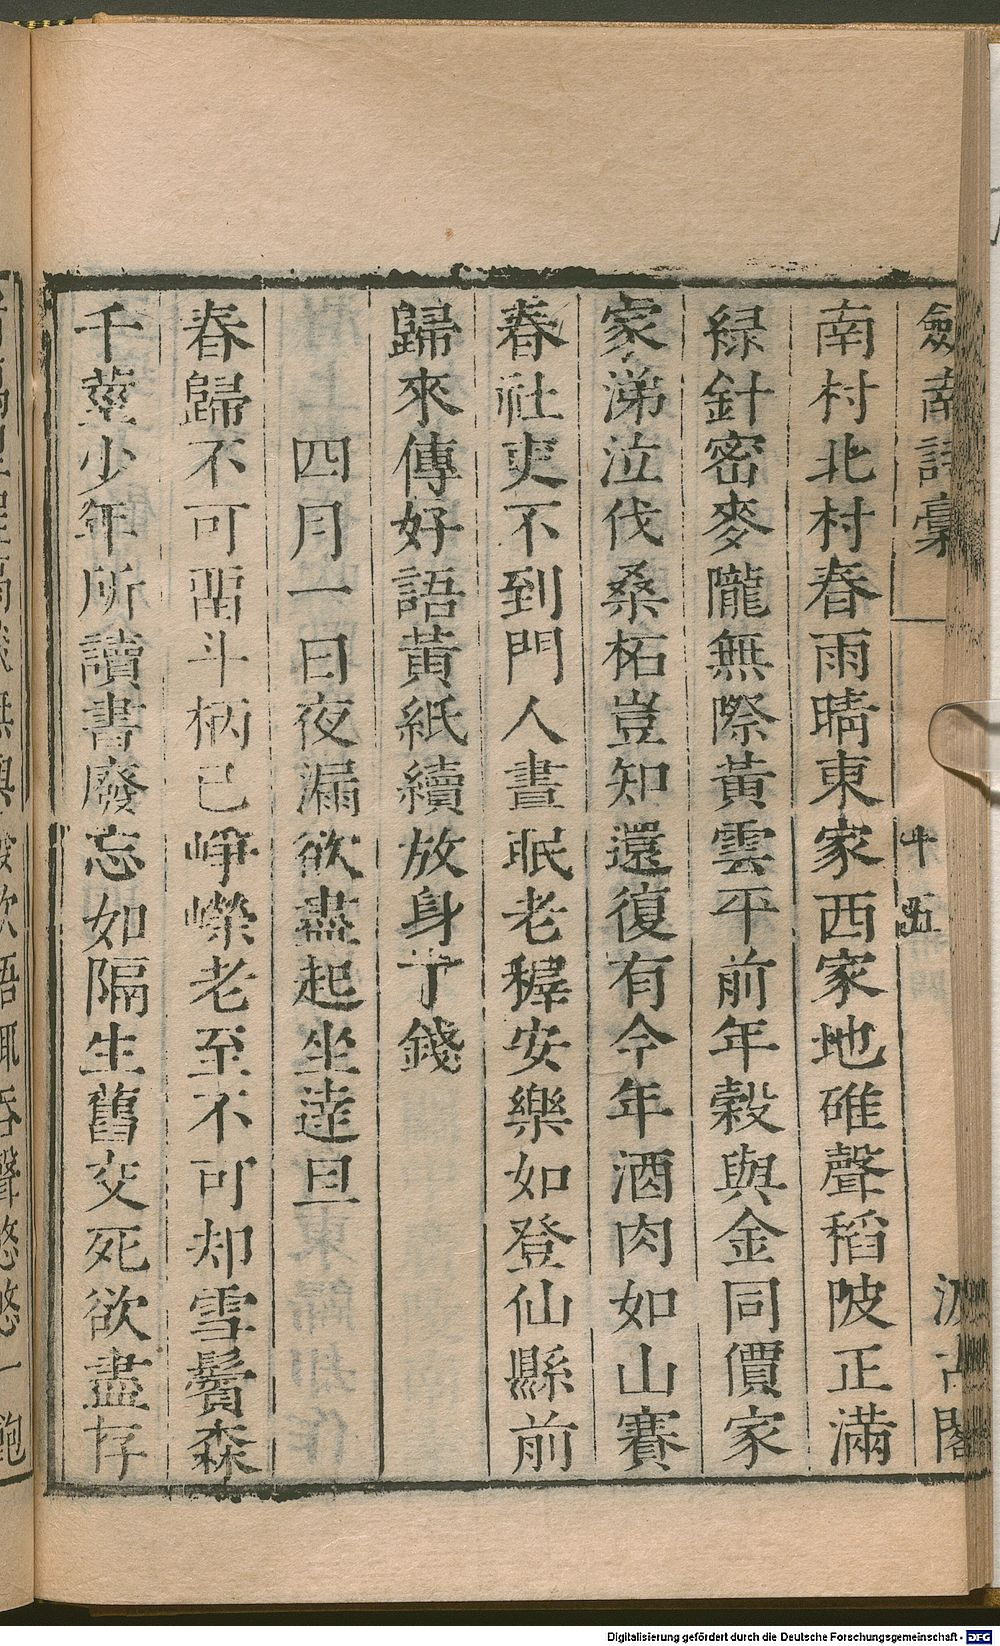 劒南詩稾
十五
汲古閣
南村北村春雨晴東家西家地碓聲稻陂正滿
緑針密麥隴無際黃雲平前年榖與金同價家
家涕泣伐桑柘豈知還復有今年酒肉如山賽
春社吏不到門人晝眠老穉安樂如登仙縣前
歸來傳好語黃紙續放身丁錢
四月一日夜漏欲盡起坐達旦
春歸不可畱斗柄已崢嶸老至不可却雪鬢森
千莖少年所讀書廢忘如隔生舊交死欲盡存
Digitalisierung gefördert durch die Deutsche Forschungsgemeinschaft - DFG